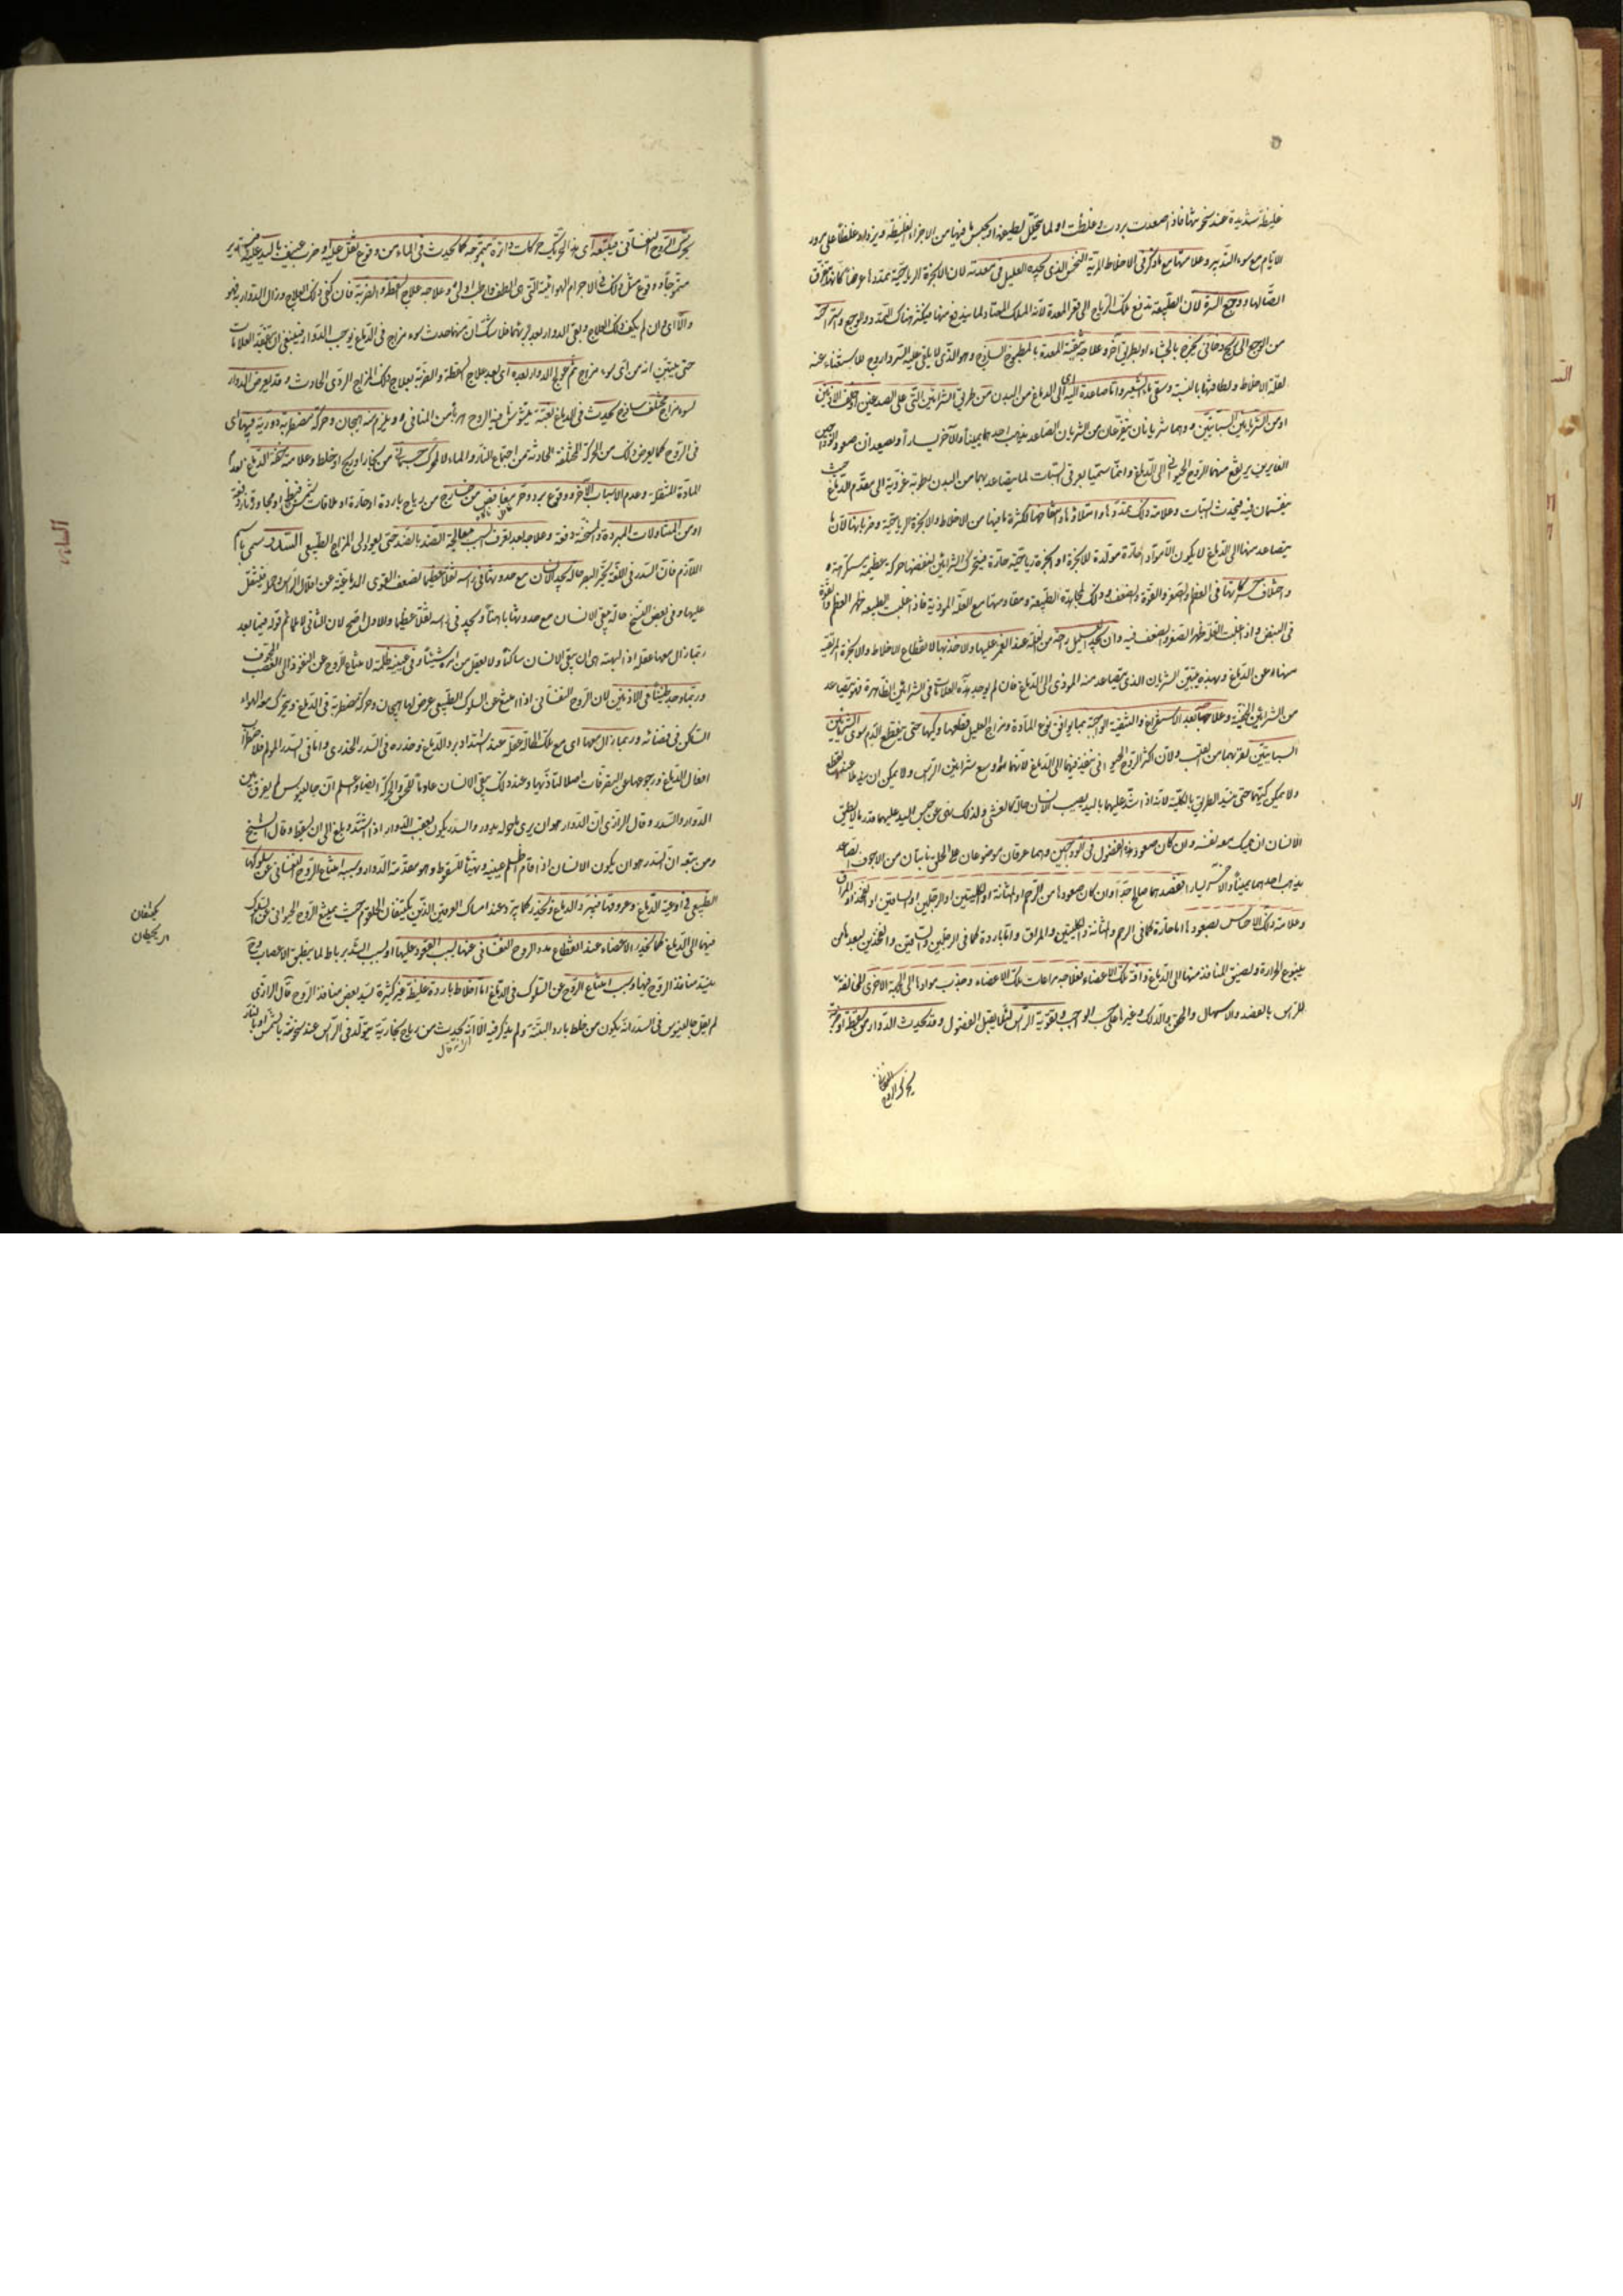 غليظة شديدة عند سخونتها فاذا صعدت بردت وغلظت او لما يتحلل لطيفها ويحتبس ما فيها من الاجزاء الغليظة ويزداد غلظا على مرور
الايام مع سوء التدبير وعلامتها مع ما ذكر فى الاخلاط المرية النخس الذى يجده العليل فى معدته لان الابخرة الرياحية تمددها
اتصالها ووجع السرة لان الطبيعة تدفع تلك الرياح الى قعر المعدة لانه المسلك المعتاد لما يندفع منها فيكثر هناك التمدد والوجع
من الوجع الى ريح دخانى يخرج بالجشاء او بطريق آخر وعلاجه تنقية المعدة بالمطبوخ الساذج وهو الذى لا يلقى عليه
لقلة الاخلاط ولطافتها بالنسبة وسقى ماء الشعير واما صاعدة اليه اى الى الدماغ من البدن من طريق الشرائين التى على الصدغين او خلف الاذنين
او من الشريانين السباتيين وهما شريانان يتفرعان من الشريان الصاعد يذهب احدهما يمينا والآخر يسارا ويصعدان صعود الوداجين
الغايرين يرتفع منهما الروح الحيوانى الى الدماغ وانما سميا بعرقى السبات لما يتصاعد بهما من البدن رطوبة عذبة الى مقدم الدماغ حيث
ينقسمان فيه فيحدث السبات وعلامة ذلك تمددها وامتلاؤها وانتفاخها لكثرة ما فيها من الاخلاط والابخرة الرياحية وضربانها لان ما
يتصاعد منها الى الدماغ لا يكون الا مواد حارة مولدة للابخرة او ابخرة رياحية حارة فيتحرك الشرائين لنفضها حركة عظيمة
واختلاف حركاتها فى العظم والصغر والقوة والضعف وذلك لمجاهدة الطبيعة ومقاومتها مع العلة الموذية فاذا غلبت الطبيعة ظهر العظم والقوة
فى النبض واذا غلبت العلة ظهر الصغر والضعف فيه وان يجد العليل راحة من العلة عند الغمز عليها والاخذ بها لانقطاع الاخلاط والابخرة المرتقية
منها عن الدماغ وبهذه يتبين الشريان الذى يتصاعد منه الموذى الى الدماغ فان لم يوجد هذه العلامات فى الشرائين الظاهرة فهو يتصاعد
من الشرائين الخفية وعلاجها بعد الاستفراغ والتنقية الواجبة بما يوافق نوع المادة ومزاج العليل قطعها وكيها حتى ينقطع الدم سوى الشريانين
السباتيين لقربهما من القلب ولان اكثر الروح الحيوانى ينفذ فيهما الى الدماغ لانهما اوسع شرائين الرأس ولا يمكن ان
ولا يمكن كيهما حتى ينسد الطريق بالكلية لانه اذا شد عليهما باليد يصيب الانسان حالة كالغشى ولذلك نهى عن حبس اليد عليهما قدر ما لا يطيق
الانسان ان يمسك معه نفسه وان كان صعود هذه الفضول فى الوداجين وهما عرقان موضوعان على الحلق نابتان من الاجوف الصاعد
يذهب احدهما يمينا والآخر يسارا ففصدهما صالح جدا وان كان صعودها من الرحم او المثانة او الكليتين او الرجلين او الساقين او الفخذ او المراق
وعلامة ذلك الاحساس بصعودها اما حارة كما فى الرحم والمثانة والكليتين والمراق واما باردة كما فى الرجلين والساقين والفخذين لبعدها من
ينبوع الحرارة ولضيق المنافذ منها الى الدماغ وآفة تلك الاعضاء فعلاجه مراعات تلك الاعضاء وجذب موادها الى الجهة الاخرى المخالفة
للرأس بالفصد والاسهال والحقن والدلك وغيرها على حسب الواجب وتقوية الرأس لئلا يقبل الفضول وقد يحدث الدوار من سقطة او ضربة
يحرك الروح النفسانى
يحرك الروح النفسانى فيتبعه اى هذا التحريك حركات دائرة بتموجه كما يحدث فى الماء من وقوع ثقل عليه او ضرب عنيف باليد عليه
متموجا ووقوع مثل ذلك فى الاجرام الهوائية التى هى الطف وارطب اولى وعلاجه علاج السقطة والضربة فان كفى ذلك العلاج وزال الدوار فهو
والا اى وان لم يكف ذلك العلاج وبقى الدوار بعد برئهما فلا شك ان منهما حدث سوء مزاج فى الدماغ يوجب الدوار فينبغى ان يتفقد العلامات
حتى يتبين انه من اى سوء مزاج ثم يعالج الدوار بعده اى بعد علاج السقطة والضربة بعلاج ذلك المزاج الردى الحادث وقد يعرض الدوار
لسوء مزاج مختلف ساذج يحدث فى الدماغ بغتة يتشوش فيه الروح هربا من المنافى ويلزم منه هيجان وحركة مضطربة دورية فيها اى
فى الروح كما يعرض ذلك من الحركة المختلفة الحادثة من اجتماع النار والماء لا لمحرك جسمانى من بخار او ريح او خلط وعلامته خفة الدماغ لعدم
المادة المثقلة وعدم الاسباب الاخر ووقوع برد وحر مغافض من خارج من رياح باردة او حارة او ملاقات شمس
او من المتناولات المبردة والمسخنة دفعة وعلاجه بعد تعرف السبب معالجة الضد بالضد حتى يعود الى المزاج الطبيعى السدر سمى باسم
اللازم فان السدر فى اللغة تحير البصر حالة يجد الانسان مع حدوثها فى رأسه ثقلا عظيما لضعف القوى الدماغية عن اقلال الرأس وحمله فيثقل
عليها وفى بعض النسخ حالة يبقى الانسان مع حدوثها باهتا ويجد فى رأسه ثقلا عظيما والاول اصح لان الثانى لا يلائم قوله فيما بعد
ربما زال معها عقله اذ البهتة هى ان يبقى الانسان ساكتا ولا يعقل من امره شيئا وفى عينيه ظلمة لامتناع الروح عن النفوذ الى العصب المجوف
وربما وجد طنينا فى الاذنين لان الروح النفسانى اذا امتنع عن السلوك الطبيعى عرض لها هيجان وحركة مضطربة فى الدماغ ويتحرك معه الهواء
الساكن فى فضائه وربما زال معها اى مع تلك الحالة عقله عند اشتداد برد الدماغ وخدره فى السدر الخدرى واما فى السدر المولم فلاضطراب
افعال الدماغ ورجوعها عن التصرفات اصلا لتأذيها وعند ذلك يبقى الانسان عادما للحس والحركة ايضا واعلم ان جالينوس لم يفرق بين
الدوار والسدر وقال الرازى ان الدوار هو ان يرى ما حوله يدور والسدر يكون بعقب الدوار اذا اشتد وبلغ الى ان يسقط وقال الشيخ
ومن يتبعه ان السدر هو ان يكون الانسان اذا قام اظلم عينيه وتهيأ للسقوط وهو مقدمة الدوار وسببه امتناع الروح النفسانى عن سلوكها
الطبيعى فى اوعية الدماغ وعروقها فيبرد الدماغ ويخدر كما يتم وعند امساك العرقين الذين يكتنفان الحلقوم حيث يمنع الروح الحيوانى عن السلوك
فيهما الى الدماغ كما يخدر الاعضاء عند انقطاع مدد الروح النفسانى عنها بسبب القعود عليها او بسبب الشد برباط لما ينطبق الاعصاب وح
ينسد منافذ الروح فيها وسبب امتناع الروح عن السلوك فى الدماغ اما اخلاط باردة غليظة غير كثيرة تسد بعض منافذ الروح قال الرازى
لم يقل جالينوس فى السدر انه يكون من خلط بارد البتة ولم يذكر فيه الا انه يحدث من رياح بخارية تتولد فى الرأس عند سخونته بالشمس او بالنار
الا انه قال
يكتنفان